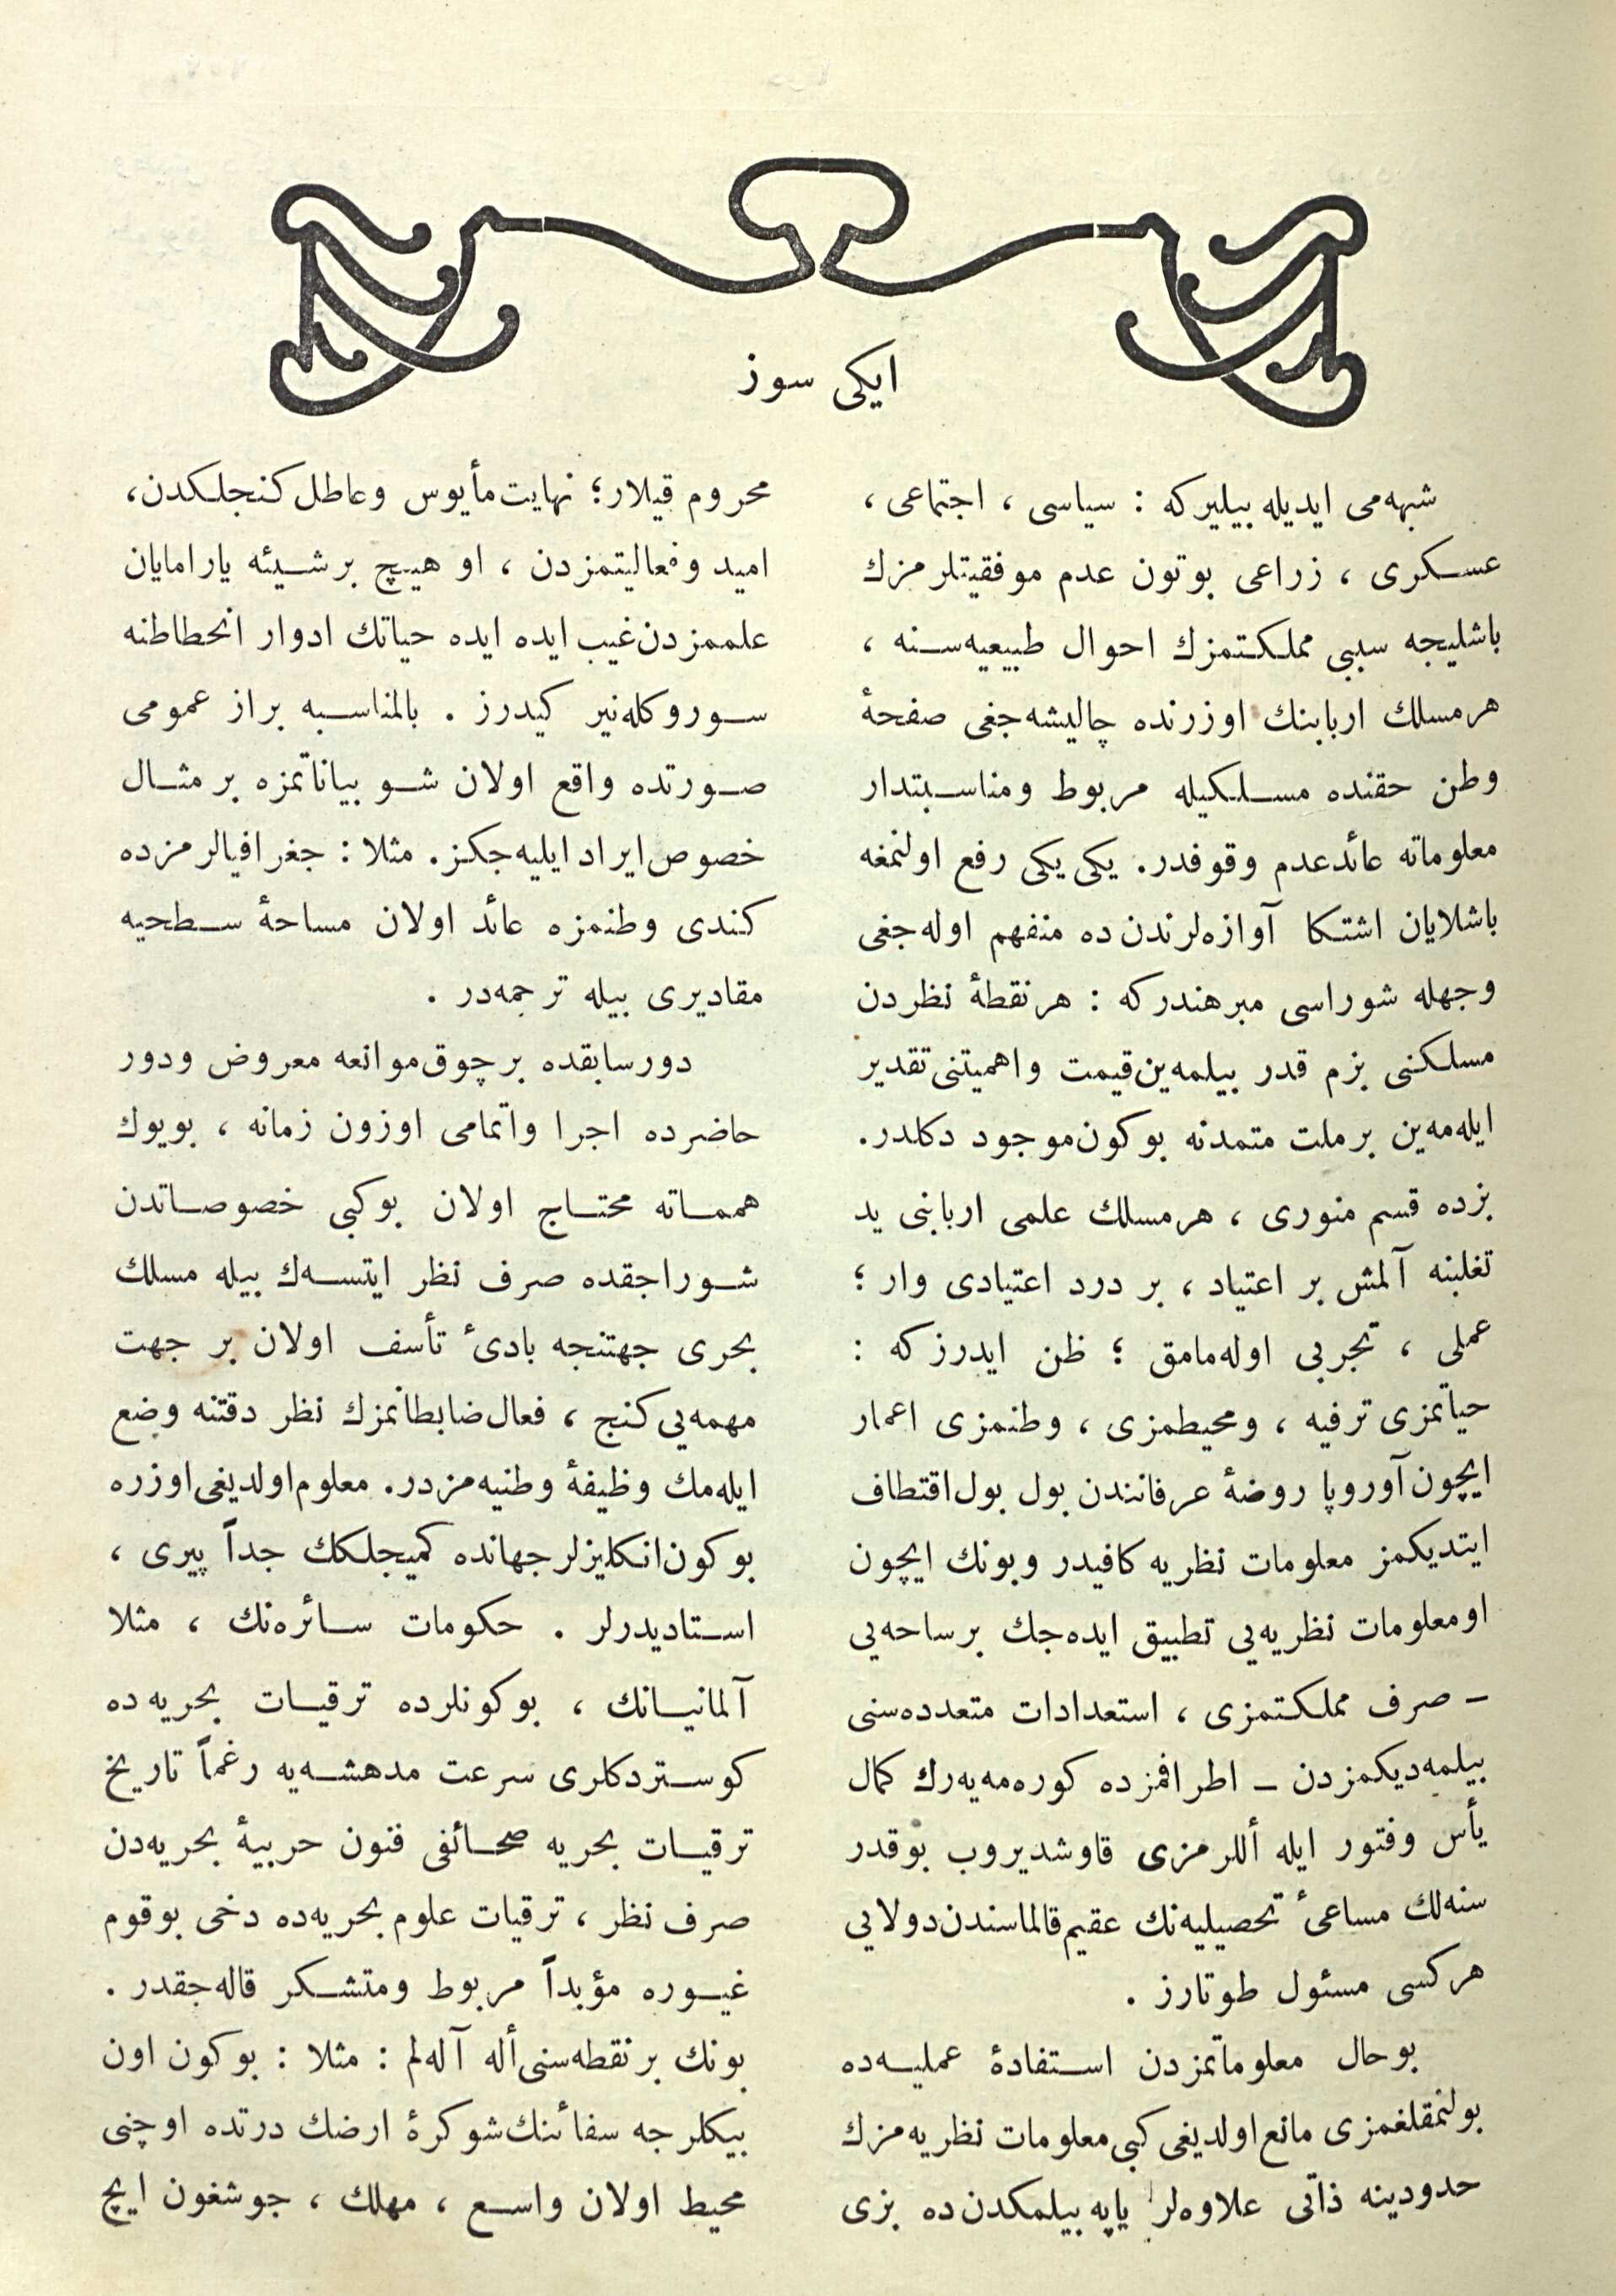 ایکی سوز
شبهه‌می ایدیله بیلیرکه : سیاسی ، اجتماعی ،
عسکری ، زراعی بوتون عدم موفقیتلرمزك
باشلیجه سببی مملکتمزك احوال طبیعیه‌سنه ،
هرمسلك اربابنك اوزرنده چالیشه‌جغی صفحهٔ
وطن حقنده مسلکیله مربوط ومناسبتدار
معلوماته عائد عدم وقوفدر. یکی یکی رفع اولنمغه
باشلایان اشتکا آوازه‌لرندن ده منفهم اوله‌جغی
وجهله شوراسی مبرهندرکه : هرنقطهٔ نظردن
مسلکنی بزم قدر بیلمه‌ین قیمت واهمیتنی تقدیر
ایله‌مه‌ین برملت متمدنه بوکون موجود دکلدر.
بزده قسم منوری ، هرمسلك علمی اربابنی ید
تغلبنه آلمش بر اعتیاد ، بر درد اعتیادی وار ؛
عملی ، تجربی اوله‌مامق ؛ ظن ایدرزکه :
حیاتمزی ترفیه ، ومحیطمزی ، وطنمزی اعمار
ایچون آوروپا روضهٔ عرفانندن بول بول اقتطاف
ایتدیکمز معلومات نظریه کافیدر وبونك ایچون
اومعلومات نظریه‌یی تطبیق ایده‌جك برساحه‌یی
ـ صرف مملکتمزی ، استعدادات متعدده‌سنی
بیلمه‌دیکمزدن ـ اطرافمزده کوره‌مه‌یه‌رك کمال
یأس وفتور ایله أللرمزی قاوشدیروب بوقدر
سنه‌لك مساعیٔ تحصیلیه‌نك عقیم قالماسندن دولایی
هرکسی مسئول طوتارز .
بوحال معلوماتمزدن استفادهٔ عملیه‌ده
بولنمقلغمزی مانع اولدیغی کبی معلومات نظریه‌مزك
حدودینه ذاتی علاوه‌لر یاپه بیلمکدن ده بزی
محروم قیلار؛ نهایت مأیوس وعاطل کنجلکدن،
امید وفعالیتمزدن ، او هیچ برشیئه یارامایان
علممزدن غیب ایده ایده حیاتك ادوار انحطاطنه
سوروکله‌نیر کیدرز . بالمناسبه براز عمومی
صورتده واقع اولان شو بیاناتمزه برمثال
خصوص ایراد ایلیه‌جکز. مثلا : جغرافیالرمزده
کندی وطنمزه عائد اولان مساحهٔ سطحیه
مقادیری بیله ترجمه‌در .
دورسابقده برچوق موانعه معروض ودور
حاضرده اجرا واتمامی اوزون زمانه ، بویوك
هممـاته محتـاج اولان بوکبی خصوصـاتدن
شوراجقده صرف نظر ایتسه‌ك بیله مسلك
بحری جهتنجه بادیٔ تأسف اولان بر جهت
مهمه‌یی کنج ، فعال ضابطانمزك نظر دقتنه وضع
ایله‌مك وظیفهٔ وطنیه‌مزدر. معلوم اولدیغی اوزره
بوکون انکلیزلر جهانده کمیجلکك جداً پیری ،
استادیدرلر . حکومات سائره‌نك ، مثلا
آلمانیـانك ، بوکونلرده ترقیـات بحریه‌ده
کوستردکلری سرعت مدهشه‌یه رغماً تاریخ
ترقیـات بحریه صحـائفی فنون حربیهٔ بحریه‌دن
صرف نظر ، ترقیات علوم بحریه‌ده دخی بوقوم
غیوره مؤبداً مربوط ومتشکر قاله‌جقدر .
بونك برنقطه‌سنی أله آله‌لم : مثلا : بوکون اون
بیکلرجه سفائنك شوکرهٔ ارضك درتده اوچنی
محیط اولان واسع ، مهلك ، جوشغون ایچ